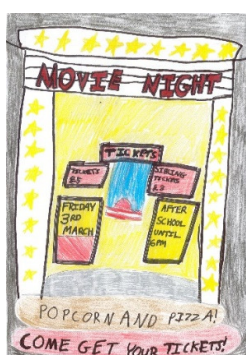 MOVIE NIGHT
TICKETS
TICKETS
£5
SIBLING
TICKETS
£3
FRIDAY
3RD
MARCH
AFTER
SCHOOL
UNTIL
6PM
POPCORN AND PIZZA!
COME GET YOUR TICKETS!